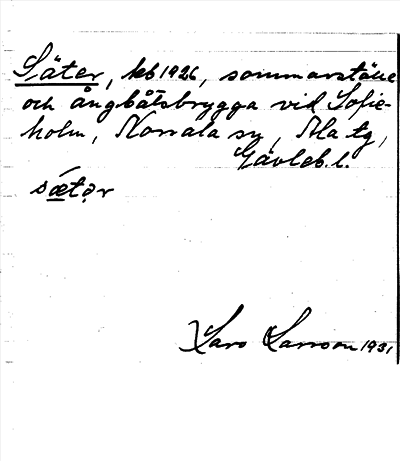 Säter, keb 1926, sommarställe
och ångbåtsbrygga vid Sofie-
holm, Norrala sn, Ala tg,
Gävleb. l.
sǽtər
Lars Larsson 1931